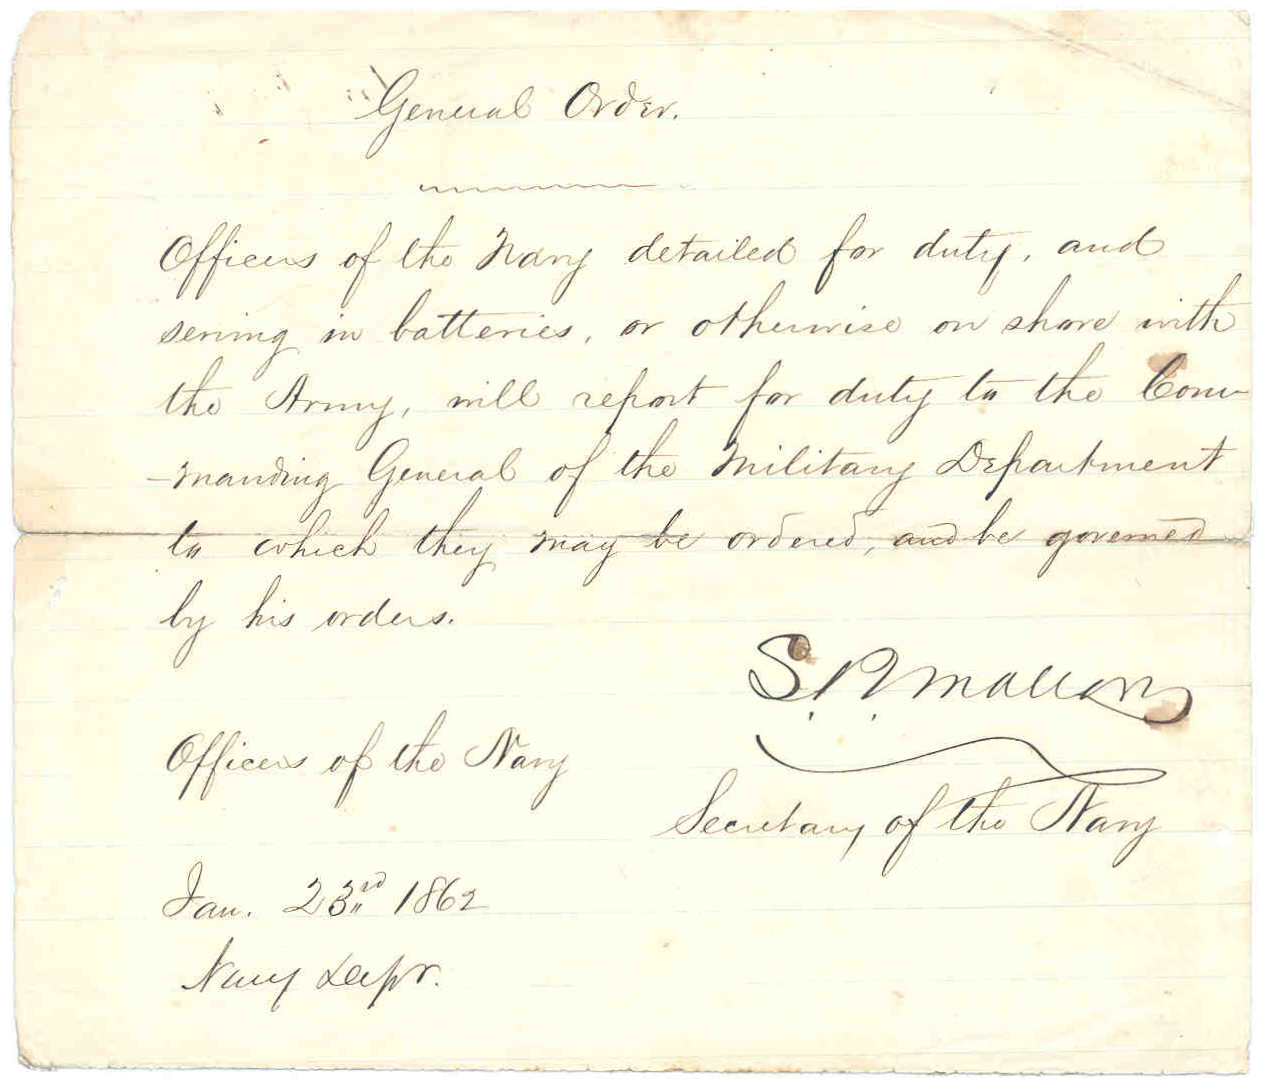 General Order.
Officers of the Navy detailed for duty, and
serving in batteries, or otherwise on shore with
the Army, will report for duty to the Com-
-manding General of the Military Department
to which they may be ordered, and be governed
by his orders.
S. R. Mallory
Officers of the Navy
Secretary of the Navy
Jan. 23rd 1862
Navy Dept.